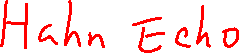 Hahn Echo